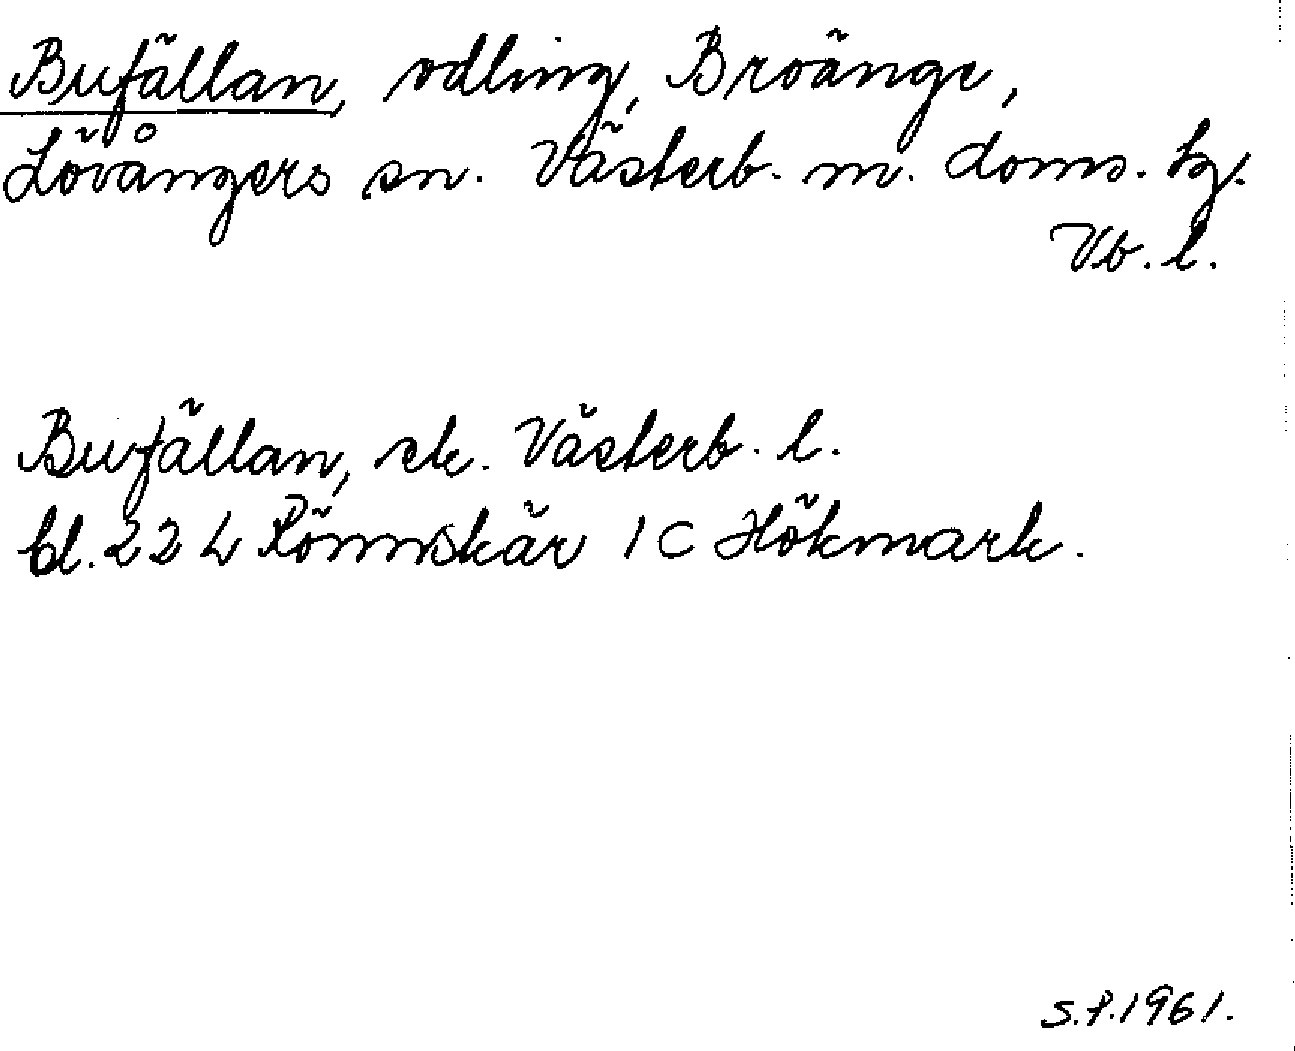 Bufällan, odling, Broänge,
Lövångers sn. Västerb. m. doms. tg.
Vb. l.
Bufällan, ek. Västerb. l.
bl. 22 L Rönnskär 1 C Hökmark.
S.P. 1961.